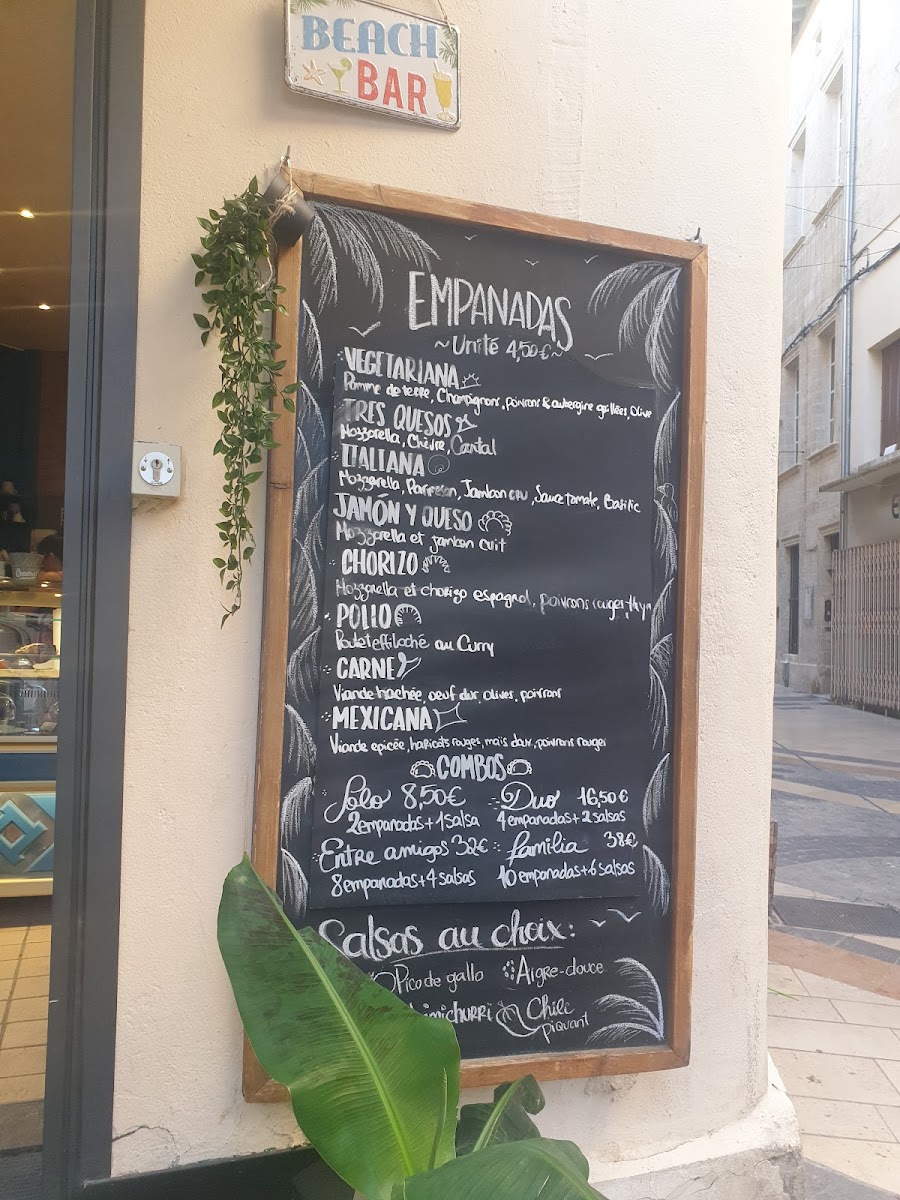 BEACH
BAR
EMPANADAS
~ Unité 4,50€ ~
VEGETARIANA
Pomme de terre, Champignons, poivrons & aubergine grillées, Olive
TRES QUESOS
Mozzarella, Chèvre, Cantal
ITALIANA
Mozzarella, Parmesan, Jambon cru, Sauce tomate, Basilic
JAMÓN Y QUESO
Mozzarella et jambon cuit
CHORIZO
Mozzarella et chorizo espagnol, poivrons rouges, thym
POLLO
Poulet effiloché au Curry
CARNE
Viande hachée, oeuf dur, olives, poivrons
MEXICANA
Viande épicée, haricots rouges, maïs doux, poivrons rouges
COMBOS
Solo 8,50€ Duo 16,50€
2 empanadas + 1 salsa 4 empanadas + 2 salsas
Entre amigos 32€ familia 38€
8 empanadas + 4 salsas 10 empanadas + 6 salsas
Salsas au choix:
Pico de gallo Aigre-douce
imichurri Chile
piquant